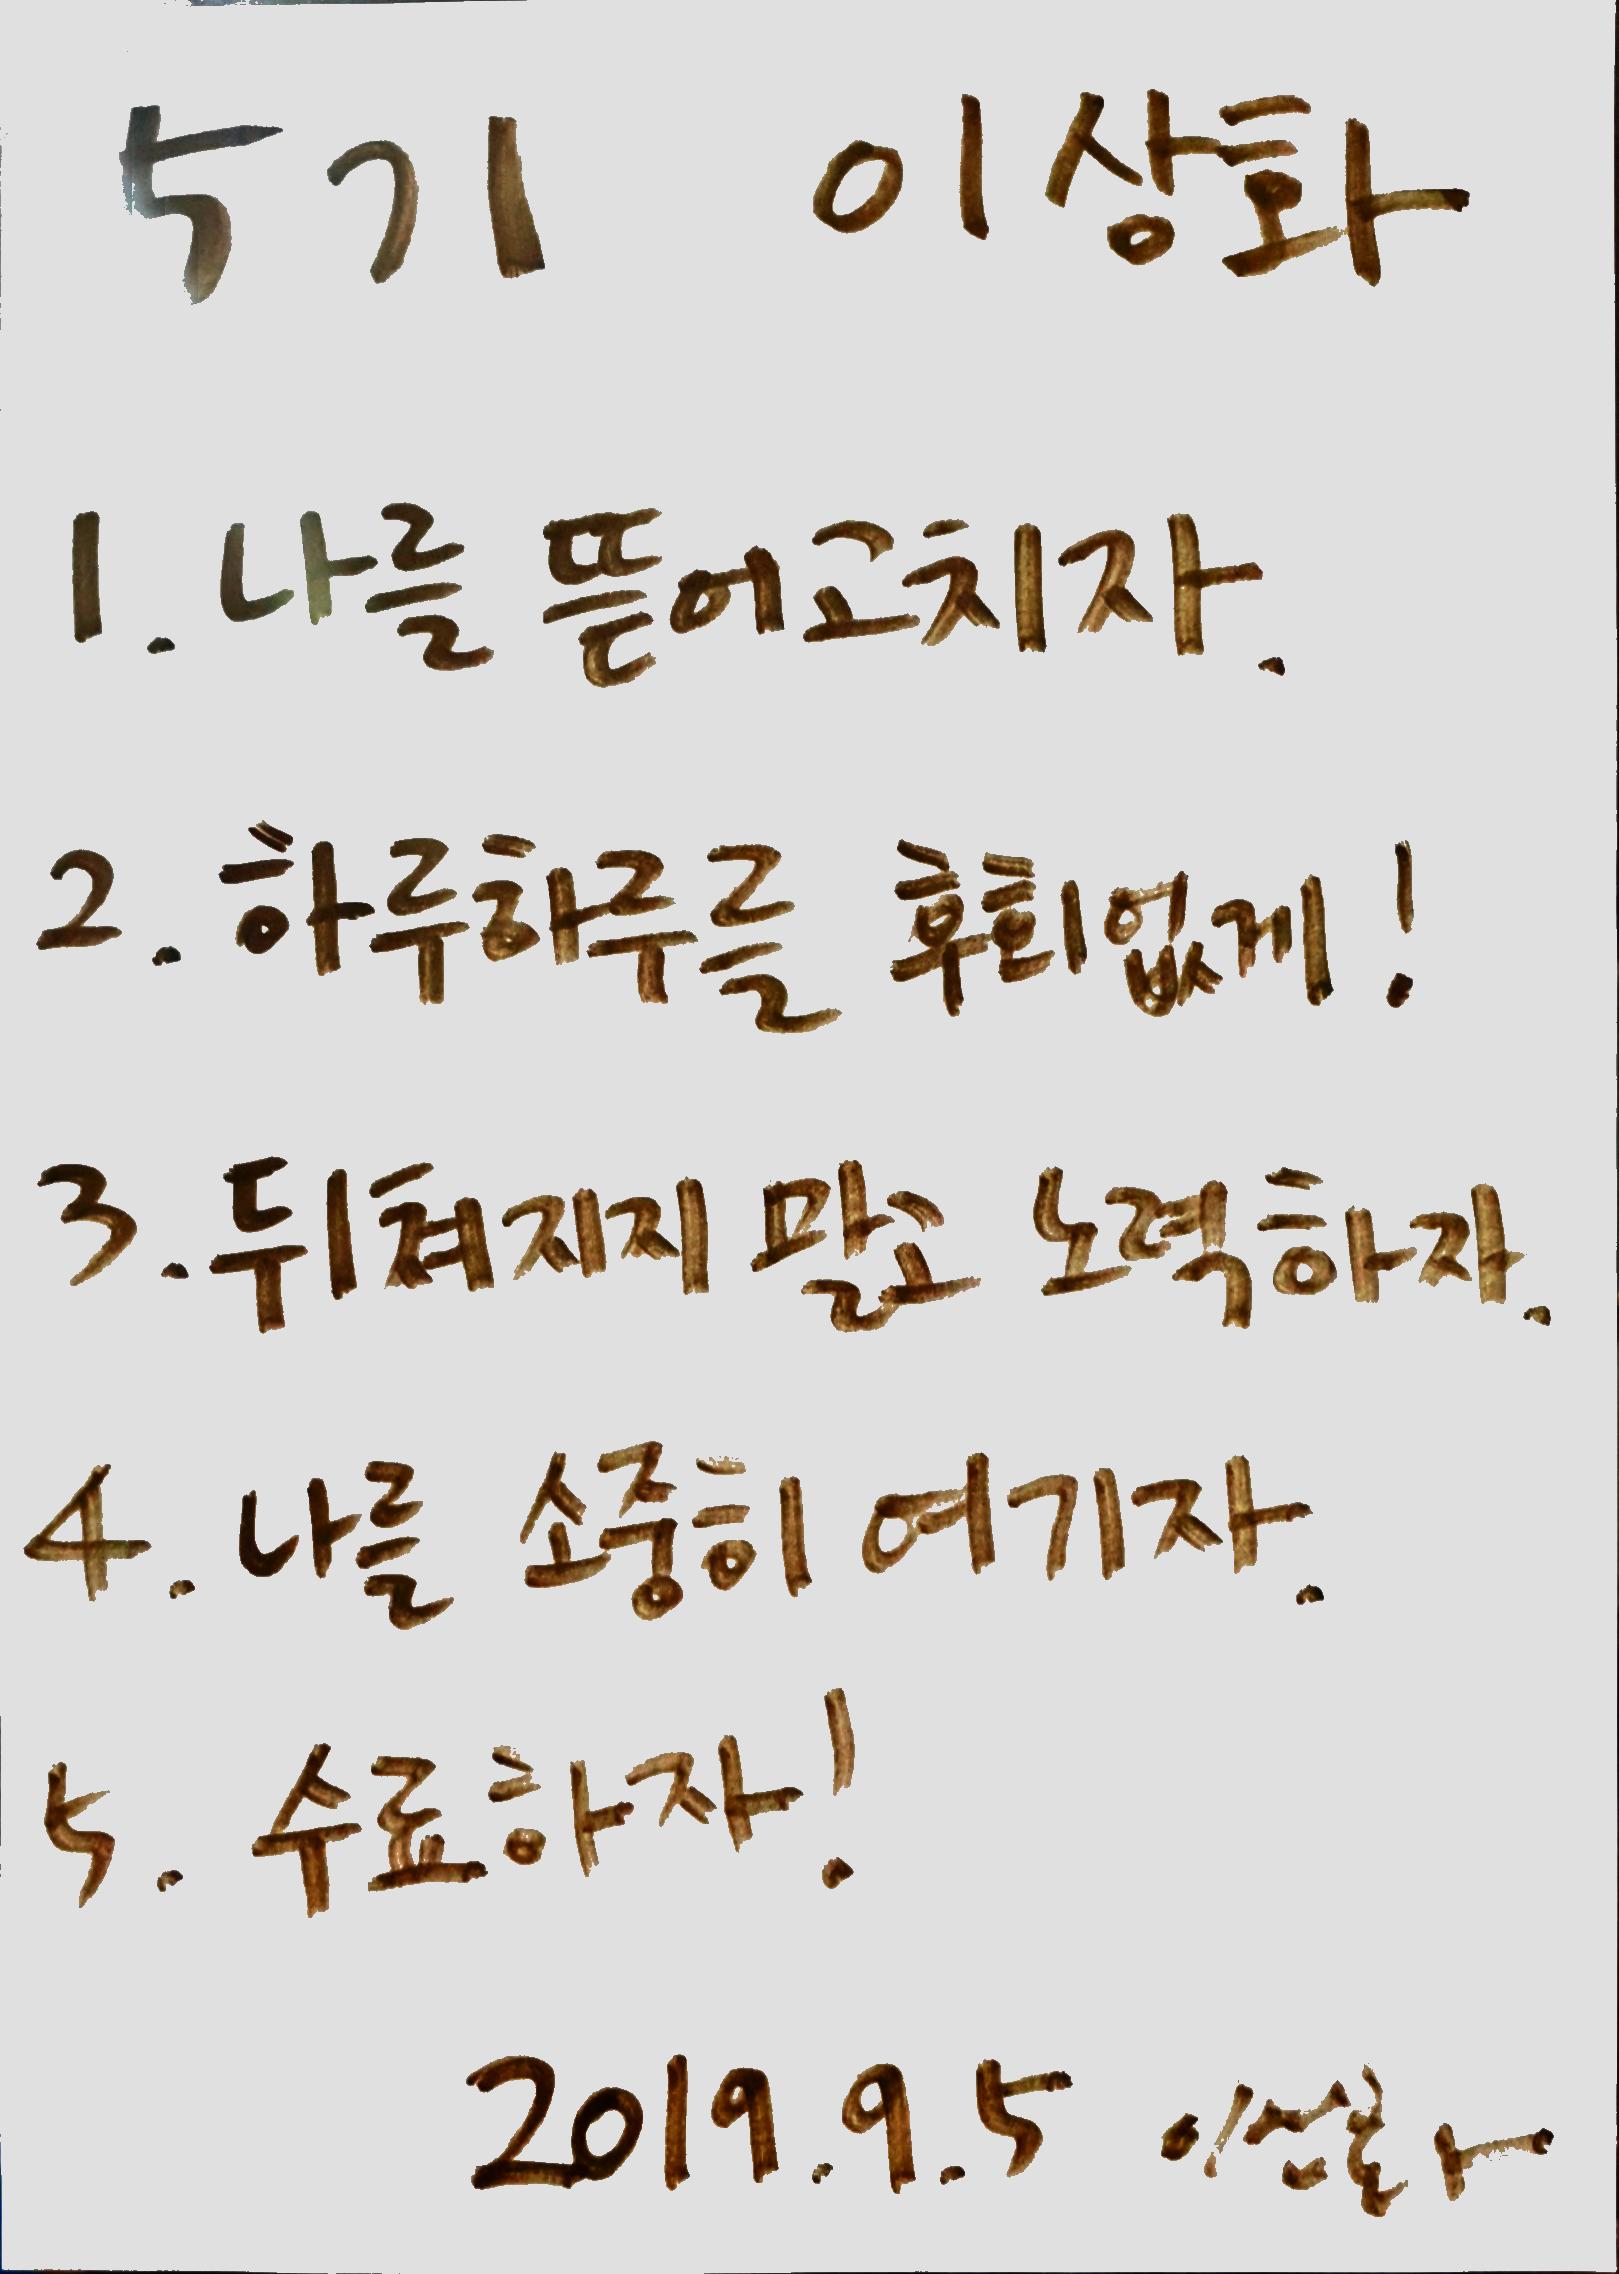 5기 이상화
1. 나를 뜯어고치자.
2. 하루하루를 후회없게!
3. 뒤쳐지지 말고 노력하자.
4. 나를 소중히 여기자.
5. 수료하자!
2019.9.5